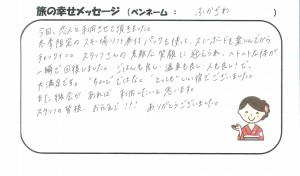 旅の幸せメッセージ (ペンネーム : ふかがわ )
今日、恋人と利用させて頂きました。
冬季限定のスキー場リフト券付パックを使って、スノーボードを楽しんだから
チェックイン スタッフさんの素敵な笑顔に迎えられ、ヘトヘトな体が
一瞬で回復しました。ごはんも良し、温泉も良し、人も良し!で、
大満足です。"ちょっと"ではなく "とっても"いい宿でございました。
また機会があれば 利用したいと思います。
スタッフの皆様 お元気で!!! ありがとうございました。